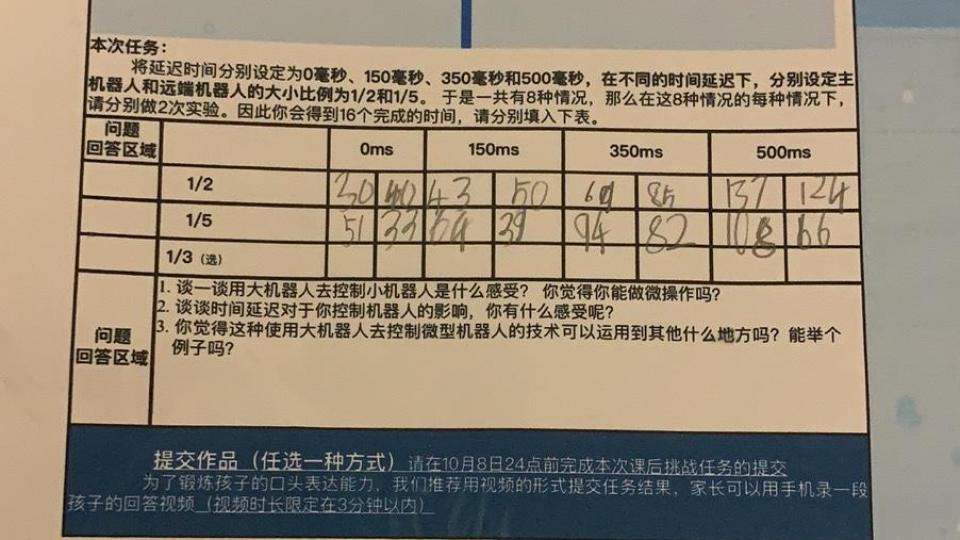 本次任务：
将延迟时间分别设定为0毫秒、150毫秒、350毫秒和500毫秒，在不同的时间延迟下，分别设定主
机器人和远端机器人的大小比例为1/2和1/5。于是一共有8种情况，那么在这8种情况的每种情况下，
请分别做2次实验。因此你会得到16个完成的时间，请分别填入下表。
问题
回答区域 0ms 150ms 350ms 500ms
1/2 30 40 43 50 85 137 124
1/5 51 33 64 39 94 82 108 66
1/3（选）
1. 谈一谈用大机器人去控制小机器人是什么感受？你觉得你能做微操作吗？
2. 谈谈时间延迟对于你控制机器人的影响，你有什么感受呢？
3. 你觉得这种使用大机器人去控制微型机器人的技术可以运用到其他什么地方吗？能举个
例子吗？
问题
回答区域
提交作品（任选一种方式）请在10月8日24点前完成本次课后挑战任务的提交
为了锻炼孩子的口头表达能力，我们推荐用视频的形式提交任务结果，家长可以用手机录一段
孩子的回答视频（视频时长限定在3分钟以内）